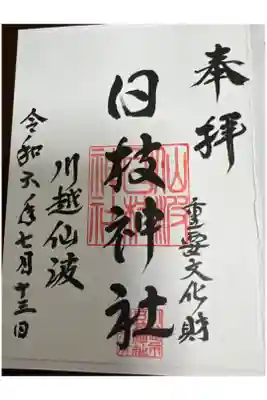 奉拝
重要文化財
日枝神社
川越仙波
令和六年七月十三日